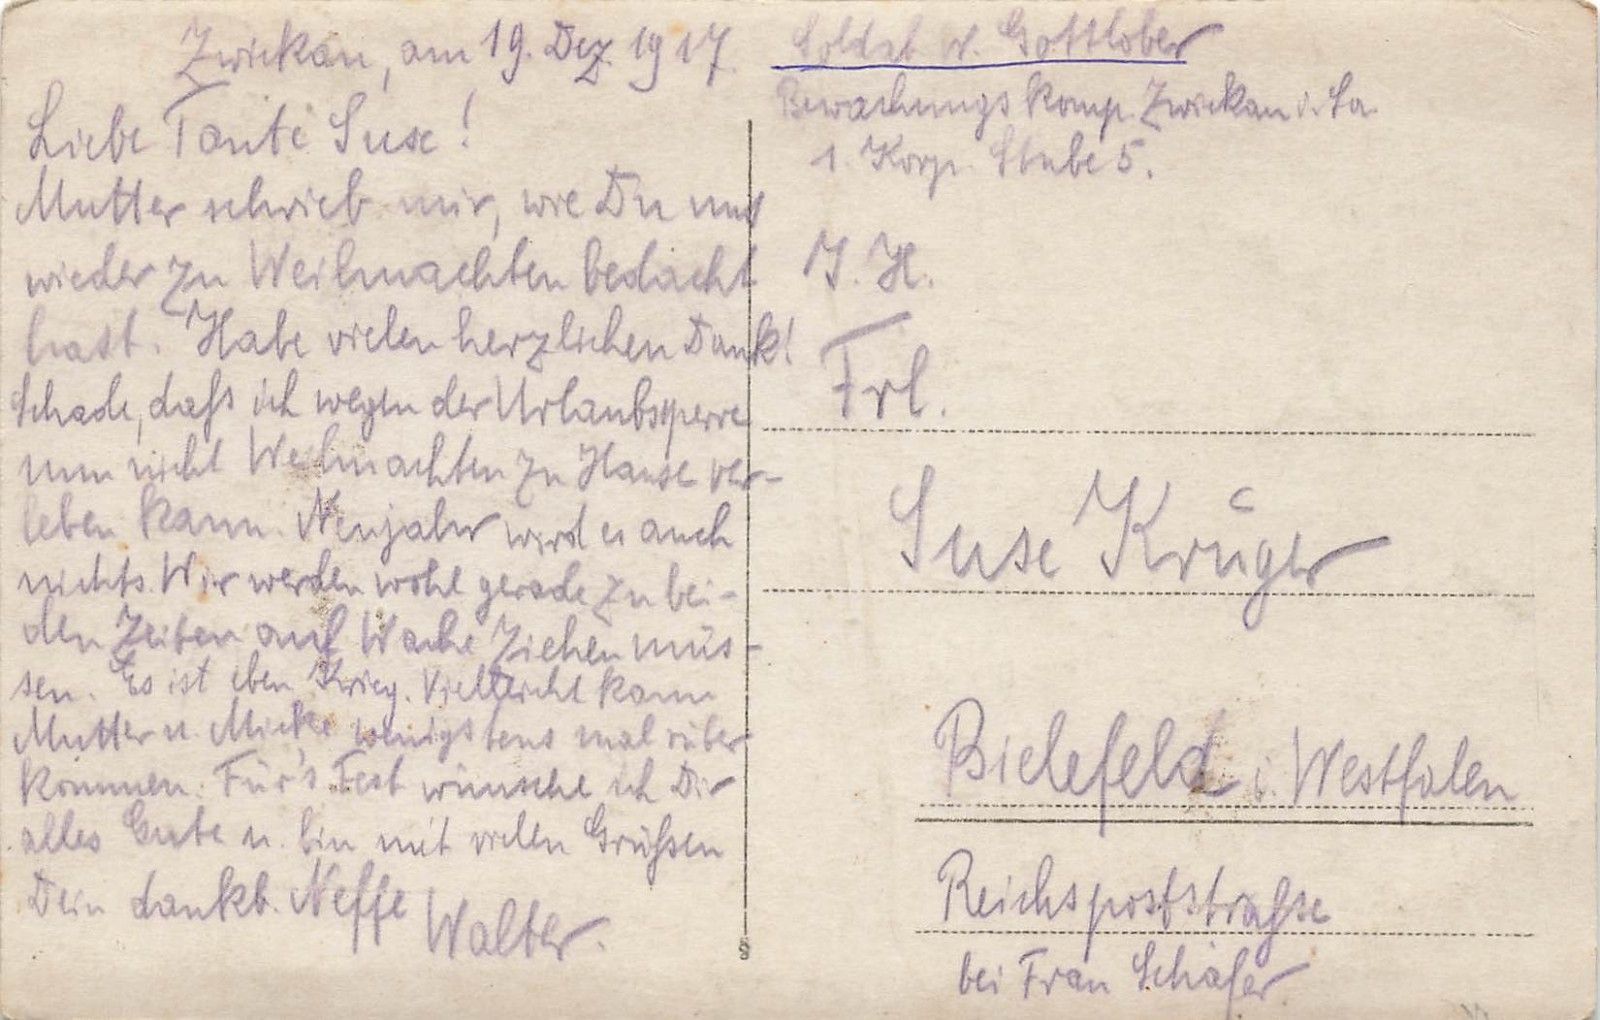 Zwickau, am 19. Dez. 1917.
Liebe Tante Suse!
Mutter schrieb mir, wie Du uns
wieder zu Weihnachten bedacht
hast. Habe vielen herzlichen Dank!
Schade, daß ich wegen der Urlaubsperre
nun nicht Weihnachten zu Hause ver-
leben kann. Neujahr wird es auch
nichts. Wir werden wohl gerade zu bei-
den Zeiten auf Wache ziehen müs-
sen. Es ist eben Krieg. Vielleicht kann
Mutter u. Mieke wenigstens mal rüber
kommen. Für's Fest wünsche ich Dir
alles Gute u. bin mit vielen Grüßen
Dein dankb. Neffe
Walter.
Soldat W. Gottlober
Bewachungskomp. Zwickau i. Sa.
1. Korp. Stube 5.
I. H.
Frl.
Suse Krüger
Bielefeld i. Westfalen
Reichspoststraße
bei Frau Schäfer